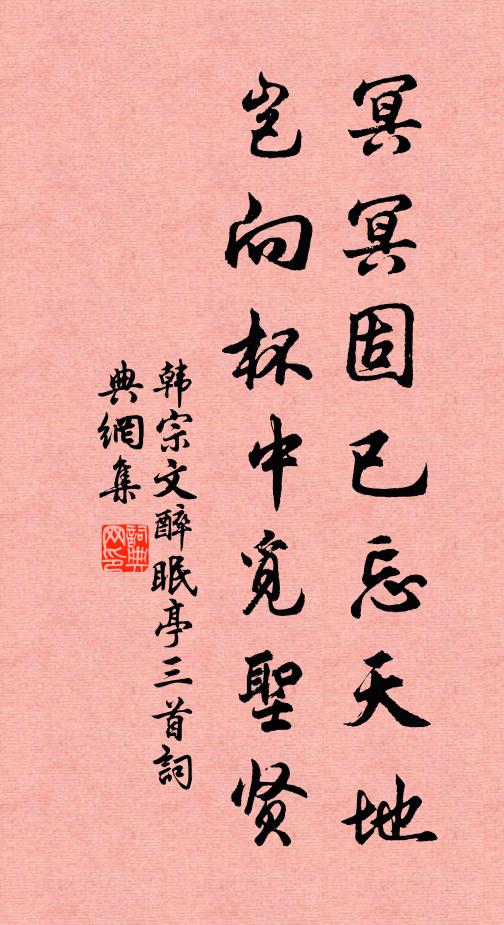 冥冥固已忘天地
岂向杯中觅聖贤
韩宗文醉眠亭三首詞
典網集
詞典
网印